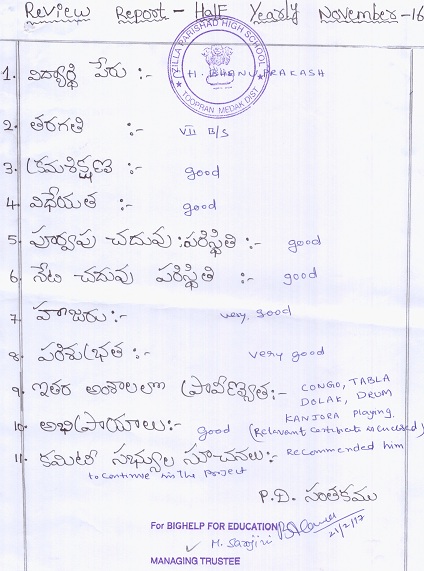 Review Report - Half Yearly November - 16
ZILLA PARISHAD HIGH SCHOOL
TOOPRAN MEDAK DIST
1. విద్యార్థి పేరు :- H. BHANU PRAKASH
2. తరగతి :- VII B/S
3. క్రమశిక్షణ :- good
4. విధేయత :- good
5. పూర్వపు చదువు :పరిస్థితి :- good
6. నేటి చదువు పరిస్థితి :- good
7. హాజరు :- very good
8. పరిశుభ్రత :- very good
9. ఇతర అంశాలలో ప్రావీణ్యత :- CONGO, TABLA
DOLAK, DRUM
KANJORA Playing.
10. అభిప్రాయాలు :- good (Relavant Certificate is encused)
11. కమిటీ సభ్యుల సూచనలు :- Recommended him
to continue in the Project
P.D. సంతకము
For BIGHELP FOR EDUCATION
21/2/17
MANAGING TRUSTEE